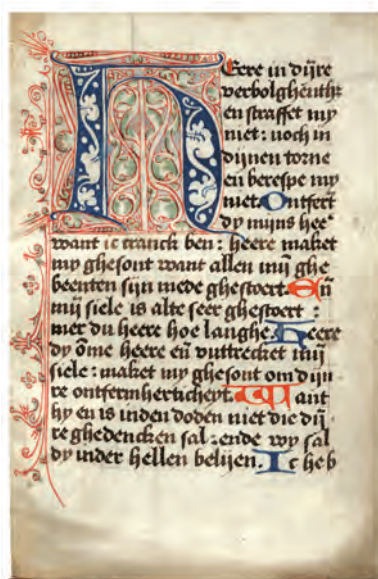 Heere in dijre
verbolghentheit
en straffet my
niet: noch in
dijnen torne
en berespe my
niet. Ontfert
dy mijns hee
want ic cranck ben: heere maket
my ghesont want allen mij ghe
beenten sijn mede ghestoert. Eñ
mij siele is alte seer ghestoert:
mer du heere hoe langhe. Heere
dy ōme heere eñ vuttrecket mij
siele: maket my ghesont om dijn
re ontfermherticheyt. Want
hy en is inden doden niet die dij
re ghedencken sal: ende wy sal
dy inder hellen belijen. Ic heb